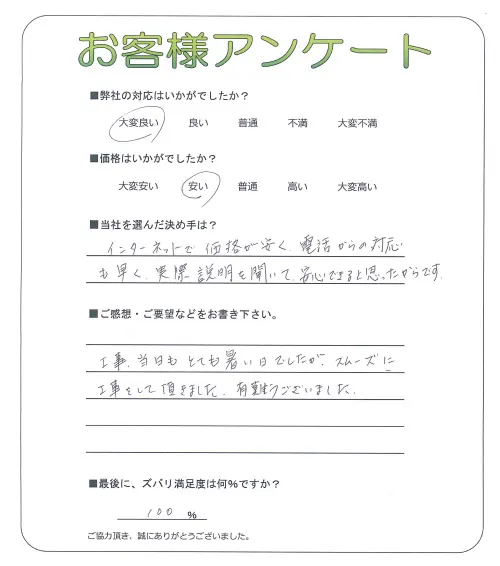 お客様アンケート
■弊社の対応はいかがでしたか？
大変良い 良い 普通 不満 大変不満
■価格はいかがでしたか？
大変安い 安い 普通 高い 大変高い
■当社を選んだ決め手は？
インターネットで価格が安く、電話からの対応
も早く、実際説明を聞いて、安心できると思ったからです。
■ご感想・ご要望などをお書き下さい。
工事、当日もとても暑い日でしたが、スムーズに
工事をして頂きました。有難うございました。
■最後に、ズバリ満足度は何%ですか？
100 %
ご協力頂き、誠にありがとうございました。